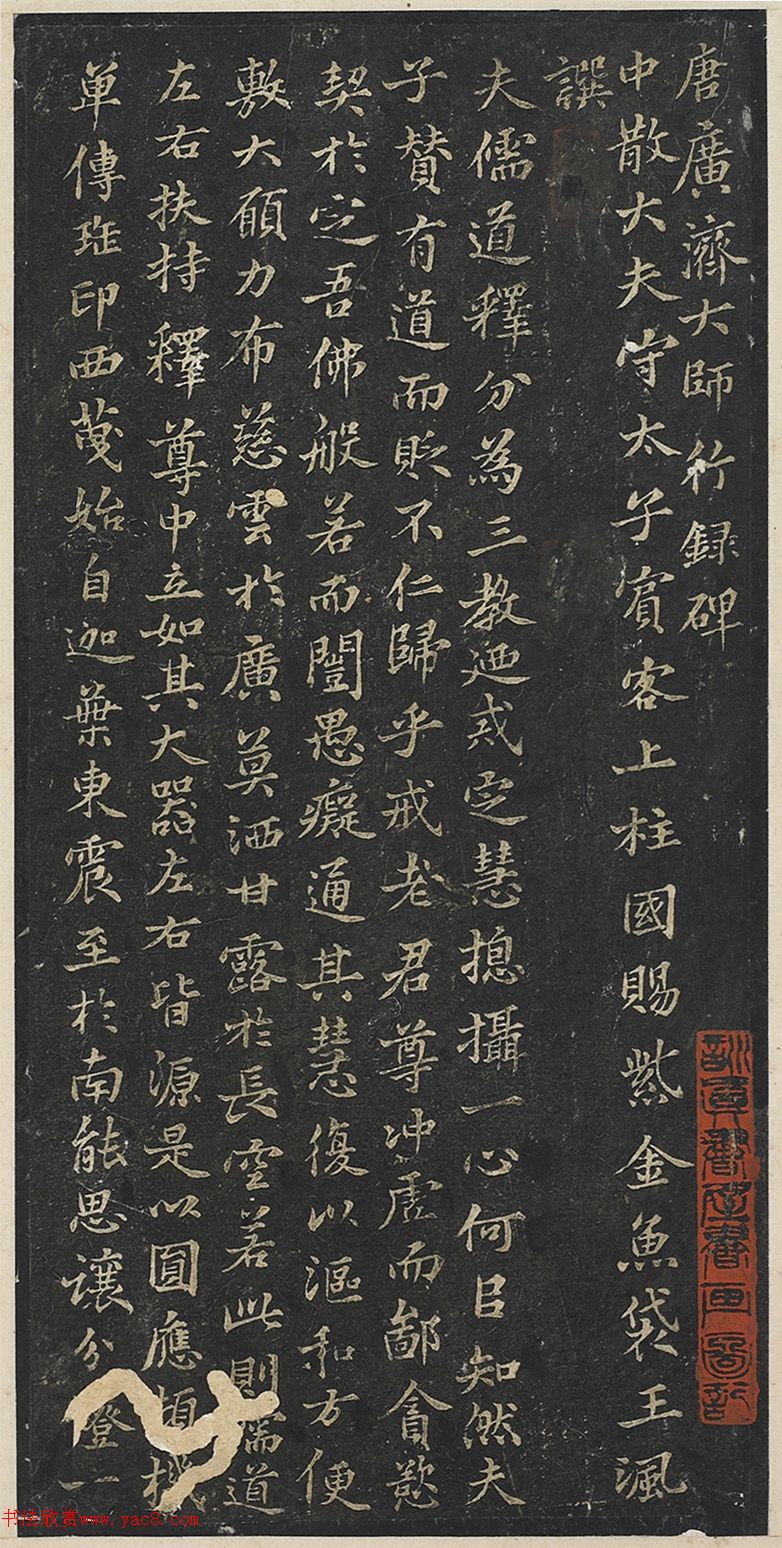 唐廣濟大師行録碑
中散大夫守太子賓客上柱國賜紫金魚袋王諷
譔
夫儒道釋分為三教廼戒定慧捴攝一心何㠯知然夫
子贊有道而貶不仁歸乎戒老君尊冲虛而鄙貪慾
契於定吾佛般若而闓愚癡通其慧復以漚和方便
敷大願力布慈雲於廣莫洒甘露於長空若此則儒道
左右扶持釋尊中立如其大器左右皆源是以圓應頓機
單傳 印西 始自迦葉東震至於南能思讓分燈一
书法欣赏www.yac8.com